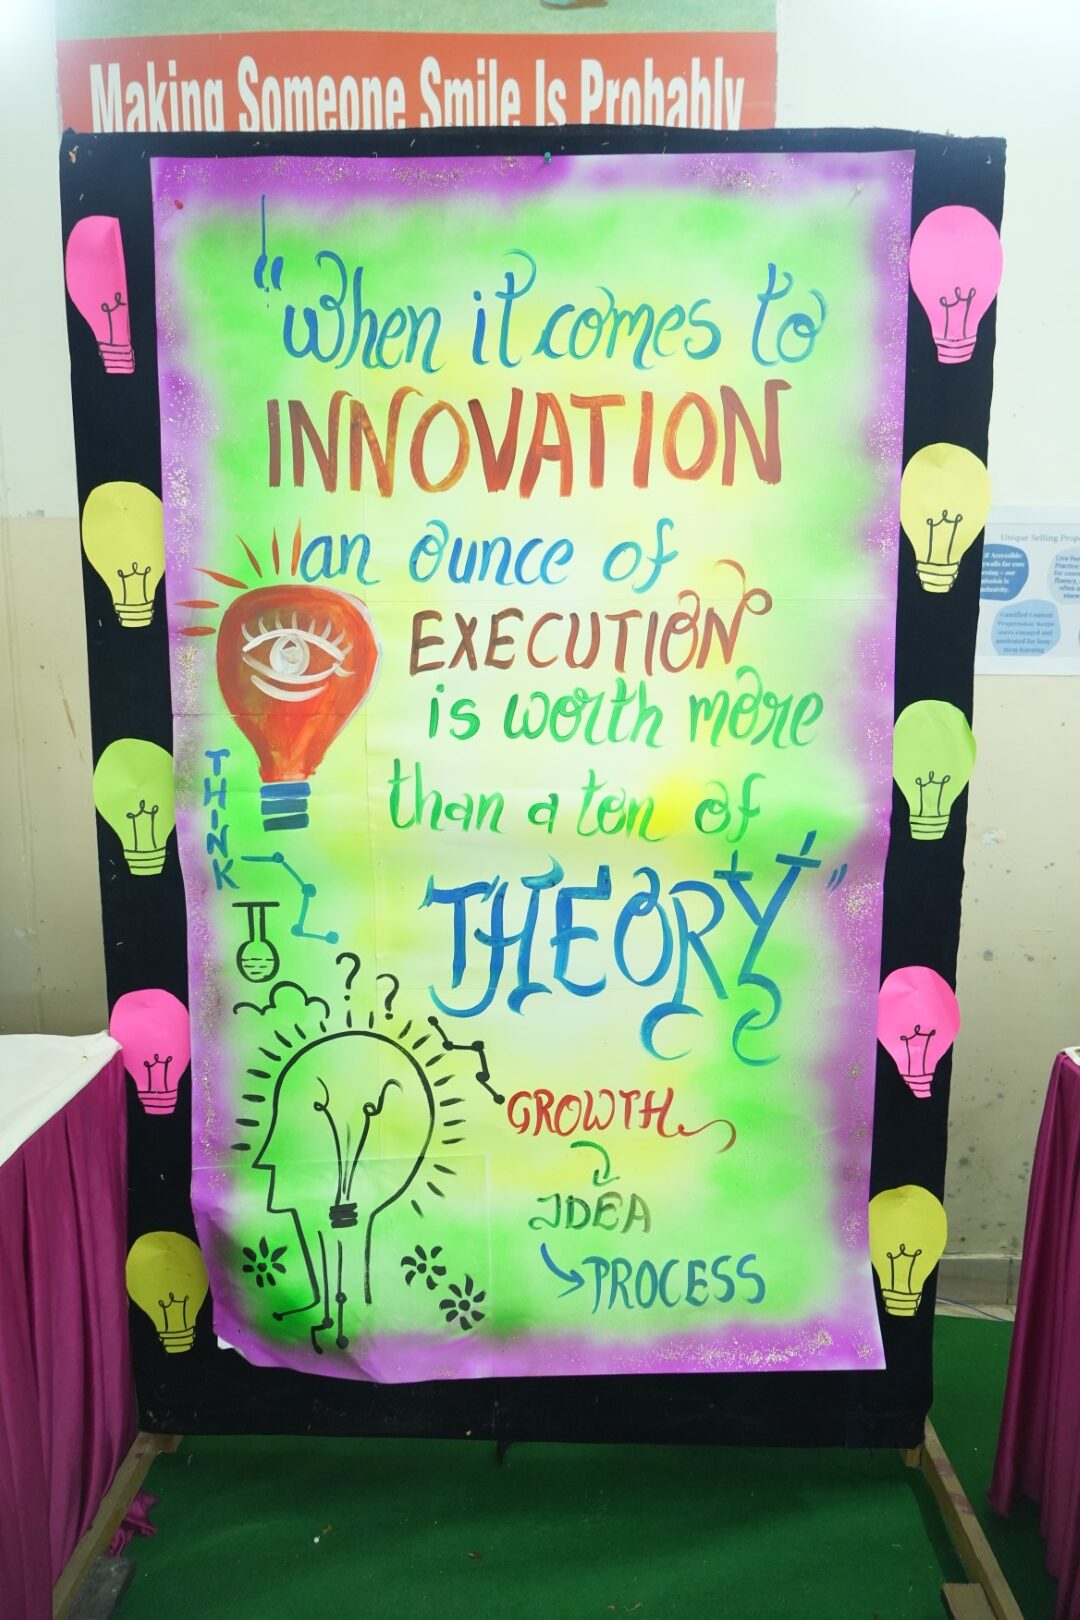 Making Someone Smile Is Probably
"When it comes to
INNOVATION
an ounce of
EXECUTION
is worth more
than a ton of
THEORY"
THINK
? ?
GROWTH
IDEA
PROCESS
Unique Selling Prop
Gamified Content
Progression: Keeps
users engaged and
motivated for long-
term learning